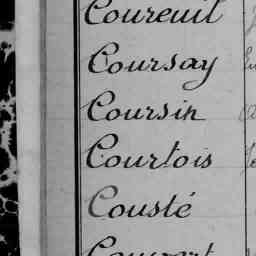 Coureuil
Coursay
Coursin
Courtois
Cousté